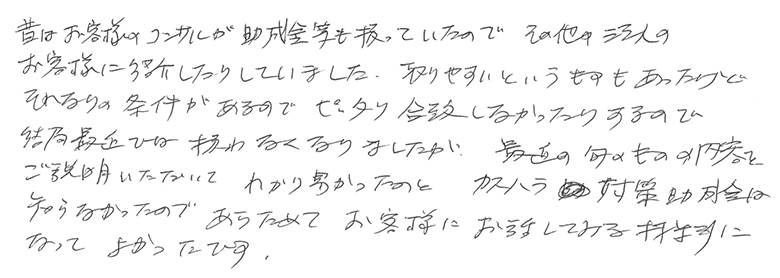 昔はお客様のコンサルが助成金等も扱っていたので その他の法人の
お客様に紹介したりしていました. 取りやすいというものもあったけど
それなりの条件があるので ピッタリ合致しなかったりするので
結局最近では扱わなくなりましたが. 最近の旬のものの内容を
ご説明いただいて わかり易かったのと カスハラ対策助成金は
知らなかったので あらためて お客様に お話してみる材料に
なって よかったです.